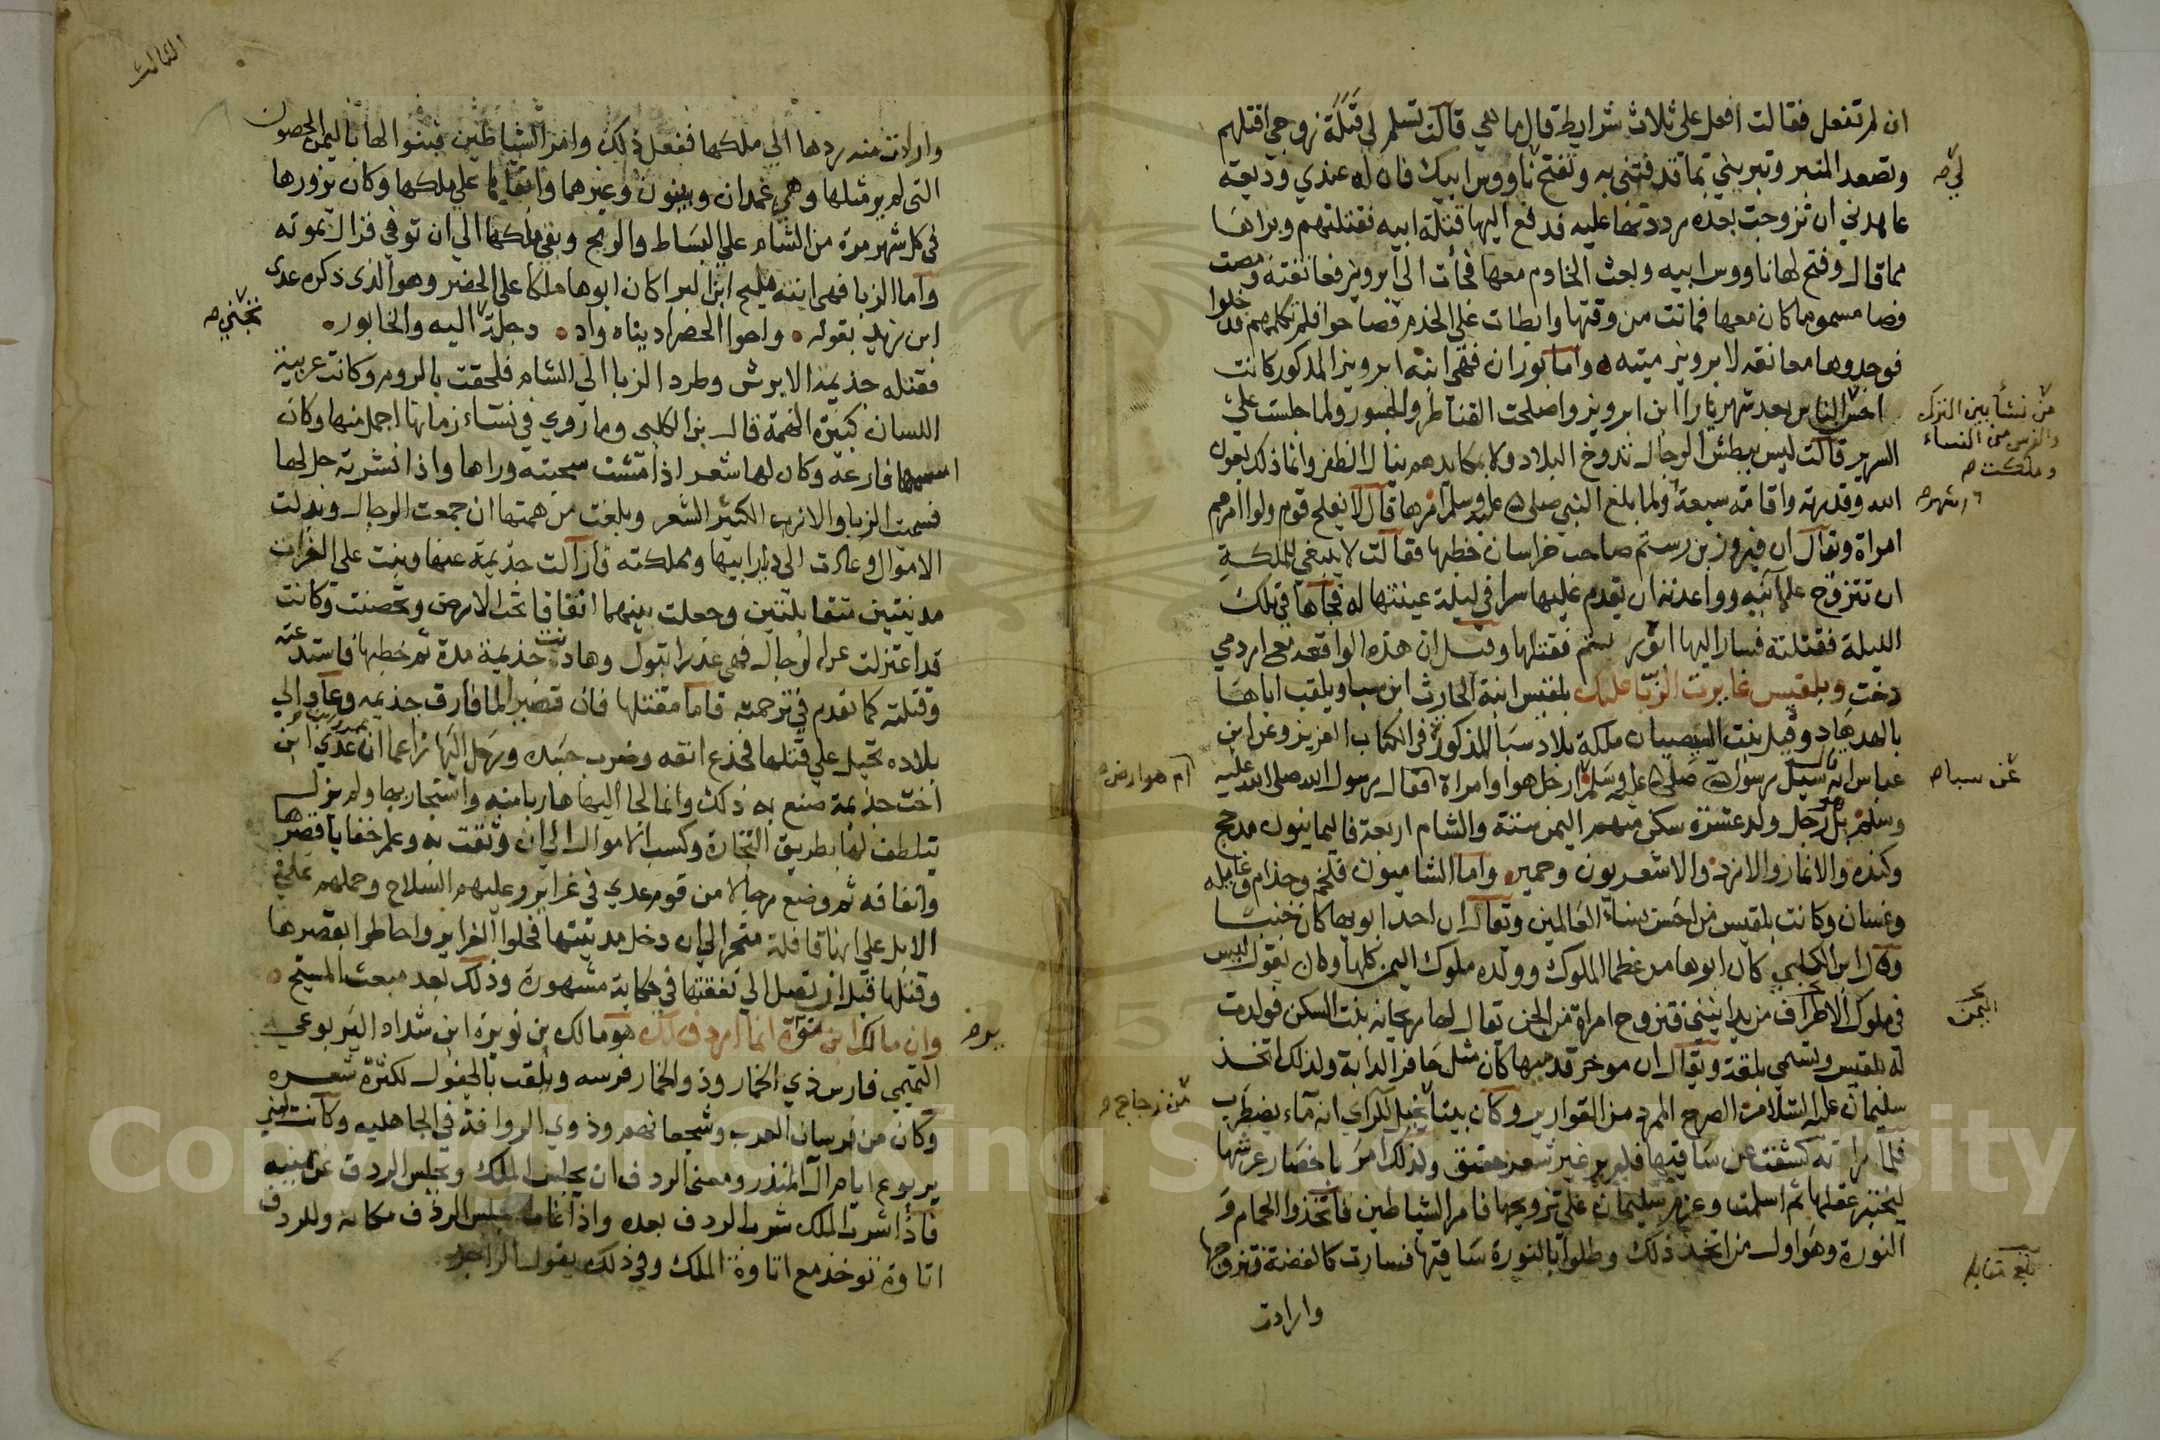 ان لم تفعل فقالت افعل على ثلاث شرايط قال ما هي قالت تسلم لي قتلة زوجي اقتلهم
وتصعد المنبر وتبريني مما قذفتني به وتفتح ناووس ابيك فان له عندي وديعة
عاهدني ان تزوجت بعده رددتها عليه فدفع اليها قتلة ابيه فقتلتهم وبراها
مما قال وفتح لها ناووس ابيه وبعث الخادم معها فجأت الى ابرويز فعانقته ومصت
فصا مسموما كان معها فماتت من وقتها وابطات على الخدم فصاحوا فلم تكلمهم فدخلوا
فوجدوها معانقه لابرويز ميته واما بوران فهي ابنة ابرويز المذكور كانت
احسن الناس بعد شهريار ابن ابرويز واصلحت القناطر والجسور ولما جلست على
السرير قالت ليس ببطش الرجال تدوخ البلاد ولا بمكايدهم ينال الظفر وانما ذلك بعون
الله وقدرته واقامة سبعة ولما بلغ النبي صلى الله عليه وسلم امرها قال لا يفلح قوم ولوا امرهم
امراة ويقال ان فيروز بن رستم صاحب خراسان خطبها فقالت لا ينبغي للملكة
ان تتزوج علانيه وواعدته ان يقدم عليها سرا في ليلة عينتها له فجاها في تلك
الليلة فقتلته فسار اليها ابوه رستم فقتلها وقيل ان هذه الواقعة مع ازدمي
دخت وبلقيس غايرت الزبا عليك بلقيس ابنة الحارث ابن سبا ويلقب اباها
بالهدهاد وقيل بنت اليصبان ملكة بلاد سبا المذكورة في الكتاب العزيز وعن ابن
عباس انه سيل رسول الله صلى الله عليه وسلم ارجل هو او امراة فقال رسول الله صلى الله عليه
وسلم بل هو رجل ولد عشرة سكن منهم اليمن ستة والشام اربعة فاليمانيون مدحج
وكندة والانمار والازد والاشعريون وحمير واما الشاميون فلخم وجذام وعامله
وغسان وكانت بلقيس من احسن نساء العالمين ويقال ان احد ابويها كان جنيا
وقال ابن الكلبي كان ابوها من عظما الملوك وولده ملوك اليمن كلها وكان يقول ليس
في ملوك الاطراف من يدانيني فتزوج امراة من الجن يقال لها ريحانه بنت السكن فولدت
له بلقيس وتسمي بلقة ويقال ان موخر قدميها كان مثل حافر الدابة ولذلك اتخذ
سليمان عليه السلام الصرح الممرد من القوارير وكان بيتا يخيل للراي انه ماء يضطرب
فلما راته كشفت عن ساقيها فلم ير غير شعر خفيف ولذلك امر باحضار عرشها
ليختبر عقلها ثم اسلمت وعزم سليمان على تزويجها فامر الشياطين فاتخذوا الحمام و
النورة وهو اول من اتخذ ذلك وطلوا بالنورة ساقيها فسارت كالفضة فتزوجها
وارادت
لي صح
من نشأ بين الترك
والفرس من النساء
وملكت صح
اشهر صح
عن سبا صح
ام هو ارض صح
اليمن
من زجاج صح
بلغ مقابلة
الثالث
وارادت منه ردها الي ملكها ففعل ذلك وامر الشياطين فبنوا لها باليمن الحصون
التي لم ير مثلها وهي غمدان وبينون وغيرها وابقاها علي ملكها وكان يزورها
في كل شهر مرة من الشام علي البساط والريح وبقي ملكها الي ان توفي فزال بموته
واما الزبا فهي ابنة مليح ابن البرا كان ابوها ملكا على الحضر وهو الذى ذكره عدى
ابن زيد بقوله واخوا الحضر اذ بناه واذ دجلة اليه والخابور
فقتله جذيمة الابرش وطرد الزبا الى الشام فلحقت بالروم وكانت عربية
اللسان كبيرة الهمة قال بن الكلبي وما روي في نساء زمانها اجمل منها وكان
اسمها فارعة وكان لها شعر اذا مشت سحبته وراها واذا نشرته جللها
فسميت الزبا والازب الكثير الشعر وبلغت من همتها ان جمعت الرجال وبذلت
الاموال وعادت الى ديار ابيها ومملكته فازالت جذيمة عنها وبنت على الفرات
مدينتين متقابلتين وجعلت بينهما انفاقا تحت الارض وتحصنت وكانت
قد اعتزلت عن الرجال فهي عذرا بتول وهادنت جذيمة مدة ثم خطبها فاستدعته
وقتلته كما تقدم في ترجمته فاما مقتلها فان قصير لما فارق جذيمه وعاد الي
بلاده تحيل علي قتلها فجذع انفه وضرب جسده ورحل اليها زاعما ان عدي ابن
اخت جذيمة صنع به ذلك وانما لجا اليها هاربا منه واستجار بها ولم يزل
يتلطف لها بطريق التجارة وكسب الاموال الى ان وثقت به وعلم خفايا قصرها
وانفاقه ثم وضع رجالا من قوم عدي في غراير وعليهم السلاح وحملهم على
الابل على انها قافلة متجر الى ان دخل مدينتها فحلوا الغراير واحاطوا بقصرها
وقتلها قبل ان تصل الى نفقتها في حكاية مشهورة وذلك بعد مبعث المسيح
وان مالك ابن نويرة انما اردف لك هو مالك بن نويرة ابن شداد اليربوعي
التميمي فارس ذي الخمار وذو الخمار فرسه ويلقب بالجفول لكثرة شعره
وكان من فرسان العرب وشجعانهم وذوي الردافة في الجاهليه وكانت لبني
يربوع ايام آل المنذر ومعنى الردف ان يجلس الملك ويجلس الردف عن يمينه
فاذا شرب الملك شرب الردف بعده واذا غاب جلس الردف مكانه وللردف
اتاوة توخذ مع اتاوة الملك وفي ذلك يقول الراجز
تجبي صح
Copyright © King Saud University
1957